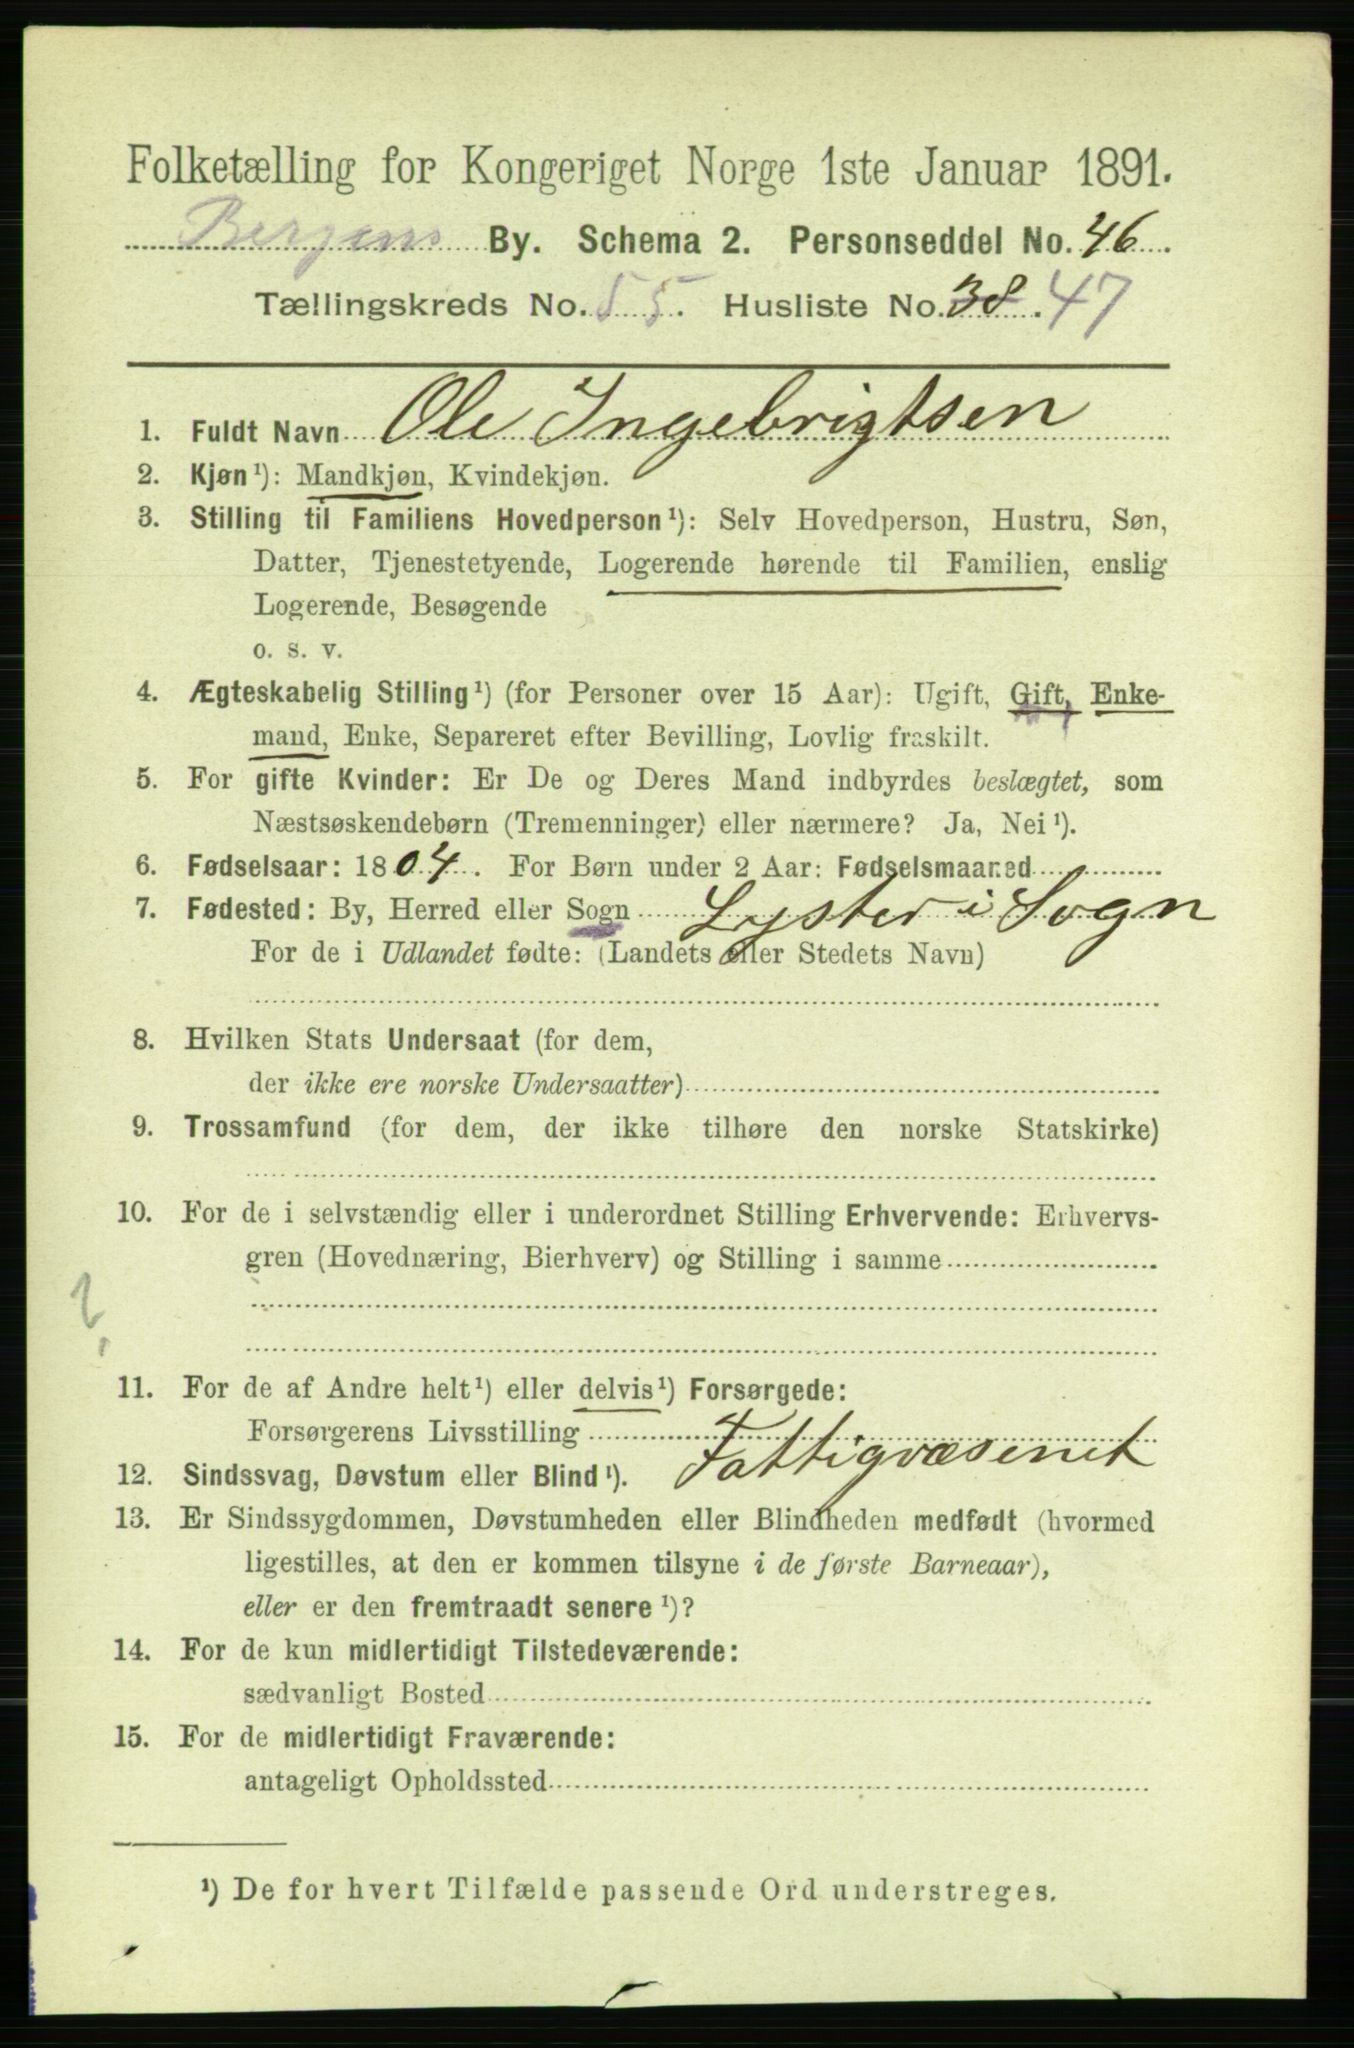 Folketælling for Kongeriget Norge 1ste Januar 1891.
Bergens By. Schema 2. Personseddel No. 46.
Tællingskreds No. 55. Husliste No. 38. 47
1. Fuldt Navn Ole Ingebrigtsen
2. Kjøn¹): Mandkjøn, Kvindekjøn.
3. Stilling til Familiens Hovedperson¹): Selv Hovedperson, Hustru, Søn,
Datter, Tjenestetyende, Logerende hørende til Familien, enslig
Logerende, Besøgende
o. s. v.
4. Ægteskabelig Stilling¹) (for Personer over 15 Aar): Ugift, Gift, Enke-
mand, Enke, Separeret efter Bevilling, Lovlig fraskilt.
5. For gifte Kvinder: Er De og Deres Mand indbyrdes beslægtet, som
Næstsøskendebørn (Tremenninger) eller nærmere? Ja, Nei¹).
6. Fødselsaar: 1804. For Børn under 2 Aar: Fødselsmaaned
7. Fødested: By, Herred eller Sogn Lyster i Sogn
For de i Udlandet fødte: (Landets eller Stedets Navn)
8. Hvilken Stats Undersaat (for dem,
der ikke ere norske Undersaatter)
9. Trossamfund (for dem, der ikke tilhøre den norske Statskirke)
10. For de i selvstændig eller i underordnet Stilling Erhvervende: Erhvervs-
gren (Hovednæring, Bierhverv) og Stilling i samme
?
11. For de af Andre helt¹) eller delvis¹) Forsørgede:
Forsørgerens Livsstilling Fattigvæsenet
12. Sindssvag, Døvstum eller Blind¹).
13. Er Sindssygdommen, Døvstumheden eller Blindheden medfødt (hvormed
ligestilles, at den er kommen tilsyne i de første Barneaar),
eller er den fremtraadt senere¹)?
14. For de kun midlertidigt Tilstedeværende:
sædvanligt Bosted
15. For de midlertidigt Fraværende:
antageligt Opholdssted
¹) De for hvert Tilfælde passende Ord understreges.